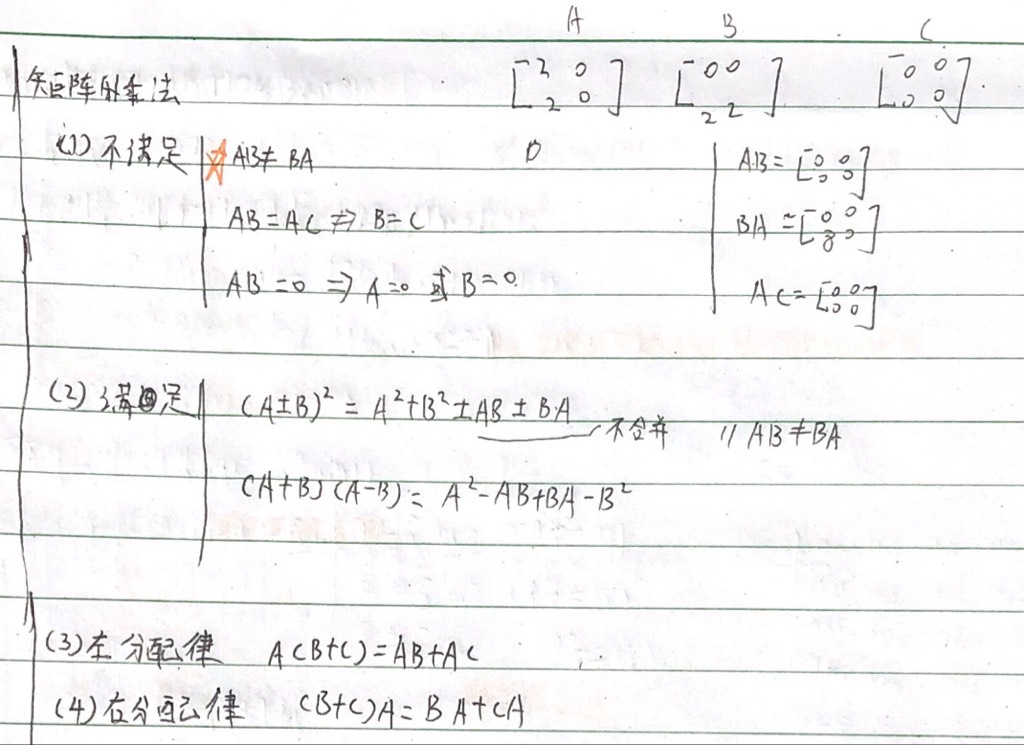 A B C
矩阵的乘法 [2 0 2 0] [0 0 2 2] [0 0 0 0]
(1) 不满足 ☆ AB≠BA 0 AB=[0 0 0 0]
AB=AC ⇏ B=C BA=[0 0 0 0]
AB=0 ⇒ A=0 或 B=0. AC=[0 0 0 0]
(2) 满足 (A±B)² = A²+B²±AB±BA 不合并 // AB≠BA
(A+B)(A-B)= A²-AB+BA-B²
(3) 左分配律 A(B+C)=AB+AC
(4) 右分配律 (B+C)A=BA+CA